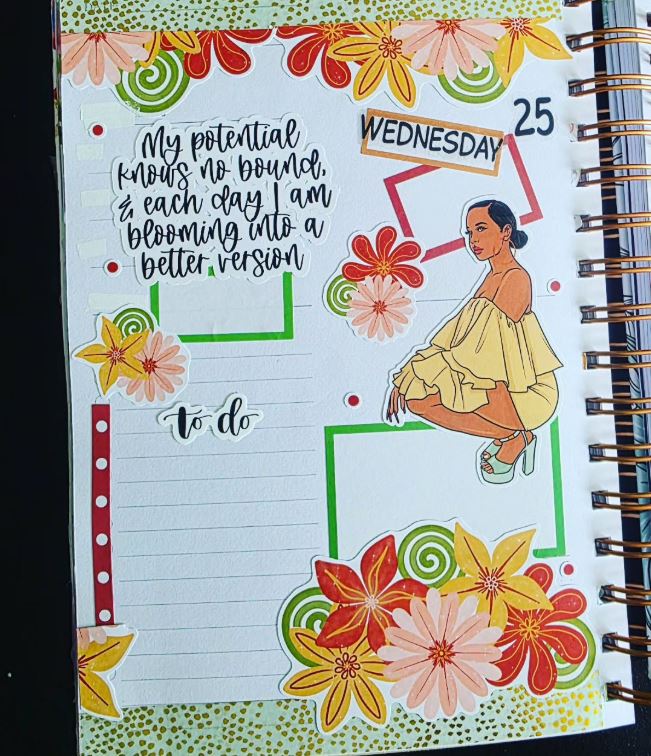 My potential
knows no bound,
& each day I am
blooming into a
better version
WEDNESDAY
25
to do